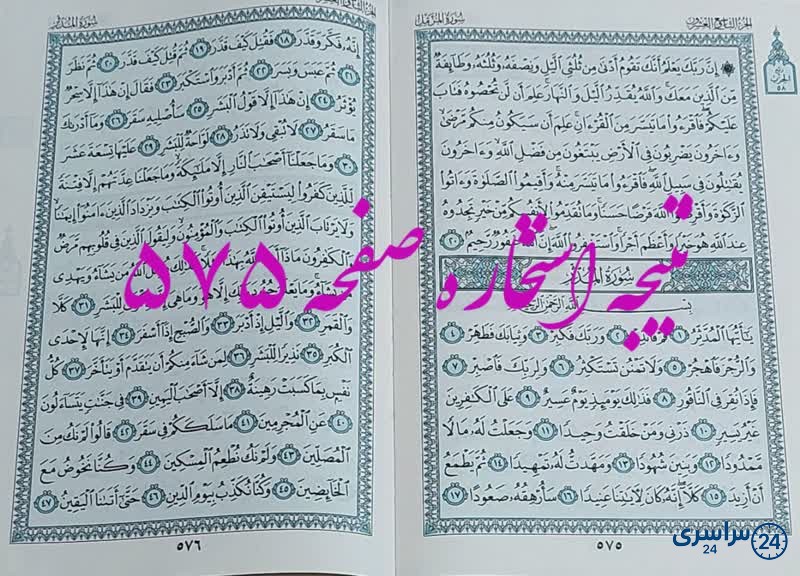 الجزء التاسع والعشرون
سورة المزمل
إِنَّ رَبَّكَ يَعْلَمُ أَنَّكَ تَقُومُ أَدْنَىٰ مِن ثُلُثَيِ ٱلَّيْلِ وَنِصْفَهُۥ وَثُلُثَهُۥ وَطَآئِفَةٌ
مِّنَ ٱلَّذِينَ مَعَكَ وَٱللَّهُ يُقَدِّرُ ٱلَّيْلَ وَٱلنَّهَارَ عَلِمَ أَن لَّن تُحْصُوهُ فَتَابَ
عَلَيْكُمْ فَٱقْرَءُوا۟ مَا تَيَسَّرَ مِنَ ٱلْقُرْءَانِ عَلِمَ أَن سَيَكُونُ مِنكُم مَّرْضَىٰ
وَءَاخَرُونَ يَضْرِبُونَ فِى ٱلْأَرْضِ يَبْتَغُونَ مِن فَضْلِ ٱللَّهِ وَءَاخَرُونَ
يُقَٰتِلُونَ فِى سَبِيلِ ٱللَّهِ فَٱقْرَءُوا۟ مَا تَيَسَّرَ مِنْهُ وَأَقِيمُوا۟ ٱلصَّلَوٰةَ وَءَاتُوا۟
ٱلزَّكَوٰةَ وَأَقْرِضُوا۟ ٱللَّهَ قَرْضًا حَسَنًا وَمَا تُقَدِّمُوا۟ لِأَنفُسِكُم مِّنْ خَيْرٍ تَجِدُوهُ
عِندَ ٱللَّهِ هُوَ خَيْرًا وَأَعْظَمَ أَجْرًا وَٱسْتَغْفِرُوا۟ ٱللَّهَ إِنَّ ٱللَّهَ غَفُورٌ رَّحِيمٌ ٢٠
سورة المدثر
بِسْمِ ٱللَّهِ ٱلرَّحْمَٰنِ ٱلرَّحِيمِ
يَٰٓأَيُّهَا ٱلْمُدَّثِّرُ ١ قُمْ فَأَنذِرْ ٢ وَرَبَّكَ فَكَبِّرْ ٣ وَثِيَابَكَ فَطَهِّرْ ٤
وَٱلرُّجْزَ فَٱهْجُرْ ٥ وَلَا تَمْنُن تَسْتَكْثِرُ ٦ وَلِرَبِّكَ فَٱصْبِرْ ٧
فَإِذَا نُقِرَ فِى ٱلنَّاقُورِ ٨ فَذَٰلِكَ يَوْمَئِذٍ يَوْمٌ عَسِيرٌ ٩ عَلَى ٱلْكَٰفِرِينَ
غَيْرُ يَسِيرٍ ١٠ ذَرْنِى وَمَنْ خَلَقْتُ وَحِيدًا ١١ وَجَعَلْتُ لَهُۥ مَالًا
مَّمْدُودًا ١٢ وَبَنِينَ شُهُودًا ١٣ وَمَهَّدتُّ لَهُۥ تَمْهِيدًا ١٤ ثُمَّ يَطْمَعُ
أَنْ أَزِيدَ ١٥ كَلَّآ إِنَّهُۥ كَانَ لِءَايَٰتِنَا عَنِيدًا ١٦ سَأُرْهِقُهُۥ صَعُودًا ١٧
٥٧٥
الجزء التاسع والعشرون
سورة المدثر
إِنَّهُۥ فَكَّرَ وَقَدَّرَ ١٨ فَقُتِلَ كَيْفَ قَدَّرَ ١٩ ثُمَّ قُتِلَ كَيْفَ قَدَّرَ ٢٠ ثُمَّ نَظَرَ
٢١ ثُمَّ عَبَسَ وَبَسَرَ ٢٢ ثُمَّ أَدْبَرَ وَٱسْتَكْبَرَ ٢٣ فَقَالَ إِنْ هَٰذَآ إِلَّا سِحْرٌ
يُؤْثَرُ ٢٤ إِنْ هَٰذَآ إِلَّا قَوْلُ ٱلْبَشَرِ ٢٥ سَأُصْلِيهِ سَقَرَ ٢٦ وَمَآ أَدْرَىٰكَ
مَا سَقَرُ ٢٧ لَا تُبْقِى وَلَا تَذَرُ ٢٨ لَوَّاحَةٌ لِّلْبَشَرِ ٢٩ عَلَيْهَا تِسْعَةَ عَشَرَ
٣٠ وَمَا جَعَلْنَآ أَصْحَٰبَ ٱلنَّارِ إِلَّا مَلَٰٓئِكَةً وَمَا جَعَلْنَا عِدَّتَهُمْ إِلَّا فِتْنَةً
لِّلَّذِينَ كَفَرُوا۟ لِيَسْتَيْقِنَ ٱلَّذِينَ أُوتُوا۟ ٱلْكِتَٰبَ وَيَزْدَادَ ٱلَّذِينَ ءَامَنُوٓا۟ إِيمَٰنًا
وَلَا يَرْتَابَ ٱلَّذِينَ أُوتُوا۟ ٱلْكِتَٰبَ وَٱلْمُؤْمِنُونَ وَلِيَقُولَ ٱلَّذِينَ فِى قُلُوبِهِم مَّرَضٌ
وَٱلْكَٰفِرُونَ مَاذَآ أَرَادَ ٱللَّهُ بِهَٰذَا مَثَلًا كَذَٰلِكَ يُضِلُّ ٱللَّهُ مَن يَشَآءُ وَيَهْدِى
مَن يَشَآءُ وَمَا يَعْلَمُ جُنُودَ رَبِّكَ إِلَّا هُوَ وَمَا هِىَ إِلَّا ذِكْرَىٰ لِلْبَشَرِ ٣١ كَلَّا
وَٱلْقَمَرِ ٣٢ وَٱلَّيْلِ إِذْ أَدْبَرَ ٣٣ وَٱلصُّبْحِ إِذَآ أَسْفَرَ ٣٤ إِنَّهَا لَإِحْدَى
ٱلْكُبَرِ ٣٥ نَذِيرًا لِّلْبَشَرِ ٣٦ لِمَن شَآءَ مِنكُمْ أَن يَتَقَدَّمَ أَوْ يَتَأَخَّرَ ٣٧ كُلُّ
نَفْسٍۭ بِمَا كَسَبَتْ رَهِينَةٌ ٣٨ إِلَّآ أَصْحَٰبَ ٱلْيَمِينِ ٣٩ فِى جَنَّٰتٍ يَتَسَآءَلُونَ
٤٠ عَنِ ٱلْمُجْرِمِينَ ٤١ مَا سَلَكَكُمْ فِى سَقَرَ ٤٢ قَالُوا۟ لَمْ نَكُ مِنَ
ٱلْمُصَلِّينَ ٤٣ وَلَمْ نَكُ نُطْعِمُ ٱلْمِسْكِينَ ٤٤ وَكُنَّا نَخُوضُ مَعَ
ٱلْخَآئِضِينَ ٤٥ وَكُنَّا نُكَذِّبُ بِيَوْمِ ٱلدِّينِ ٤٦ حَتَّىٰٓ أَتَىٰنَا ٱلْيَقِينُ ٤٧
٥٧٦
نتیجه استخاره صفحه ۵۷۵
سراسری 24
24